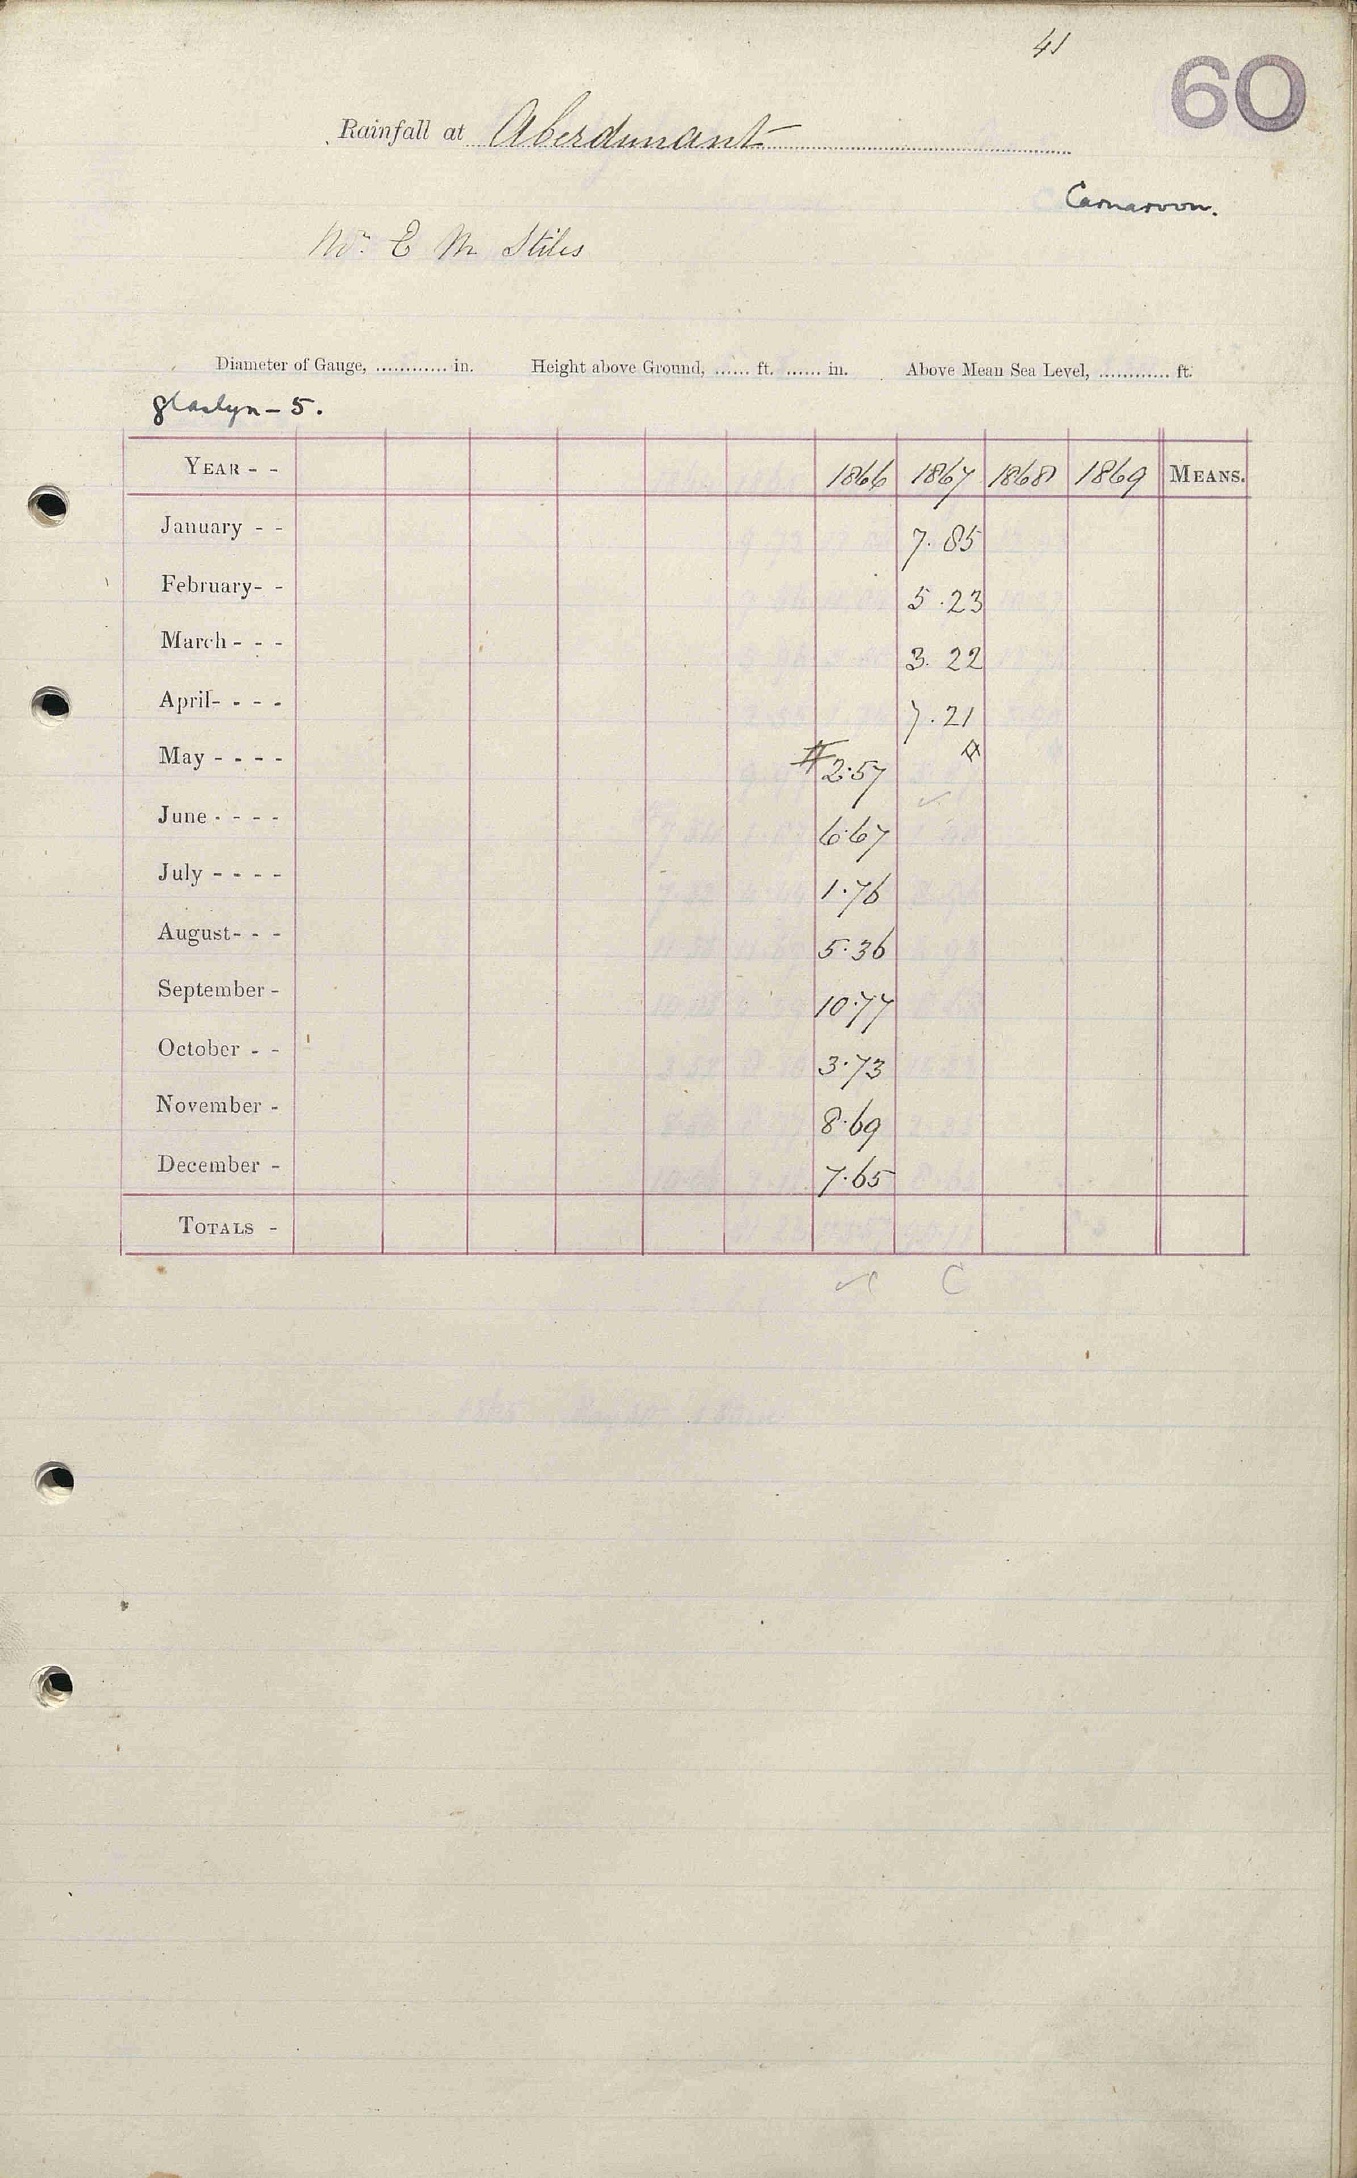 41
60
Rainfall at Aberdunant
Carnarvon.
Mr. E M Stiles
Diameter of Gauge, ............ in. Height above Ground, ...... ft. ...... in. Above Mean Sea Level, ............ ft.
Glaslyn - 5.
YEAR - - 1866 1867 1868 1869 MEANS.
January - - 7.85
February - - 5.23
March - - - 3.22
April - - - - 7.21
May - - - - #2.57 #
June - - - - 6.67
July - - - - 1.76
August - - - 5.36
September - 10.77
October - - 3.73
November - 8.69
December - 7.65
TOTALS -
✓c C